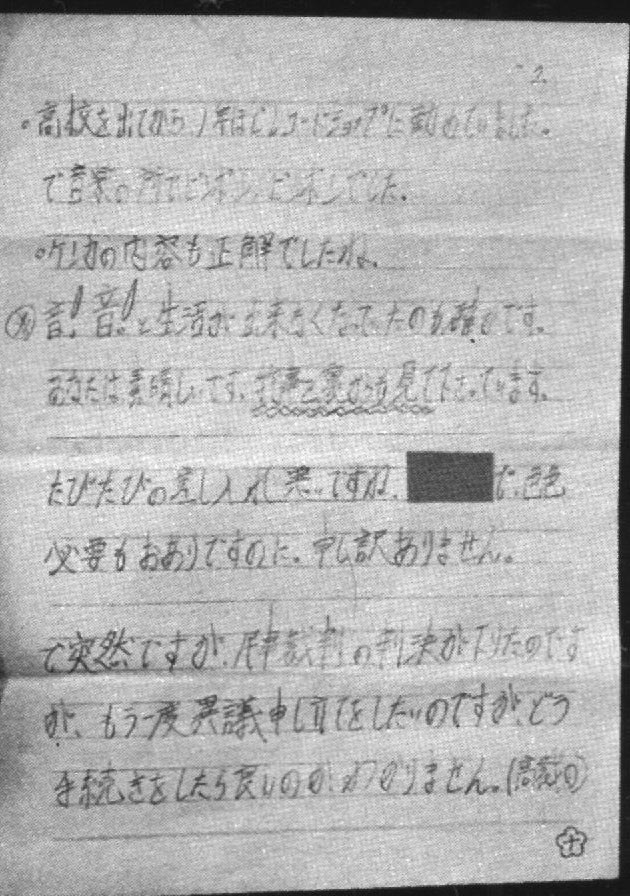 2.
。高校を出てから、1年ほどレコードショップに勤めていました。
で音楽の所でピンポン、ピンポンでした。
。ケンカの内容も正解でしたね。
音! 音! と生活が出来なくなっていたのも確かです。
あなたは素晴しいです。表裏と裏からも見て下さっています。
たびたびの差し入れし悪いですね、 で、色色
必要もおありですのに。申し訳ありません。
で突然ですが、民事裁判の判決が下りたのです
が、もう一度異議申し立てをしたいのですが、どう
手続きをしたら良いのかわかりません。(高裁の)
十